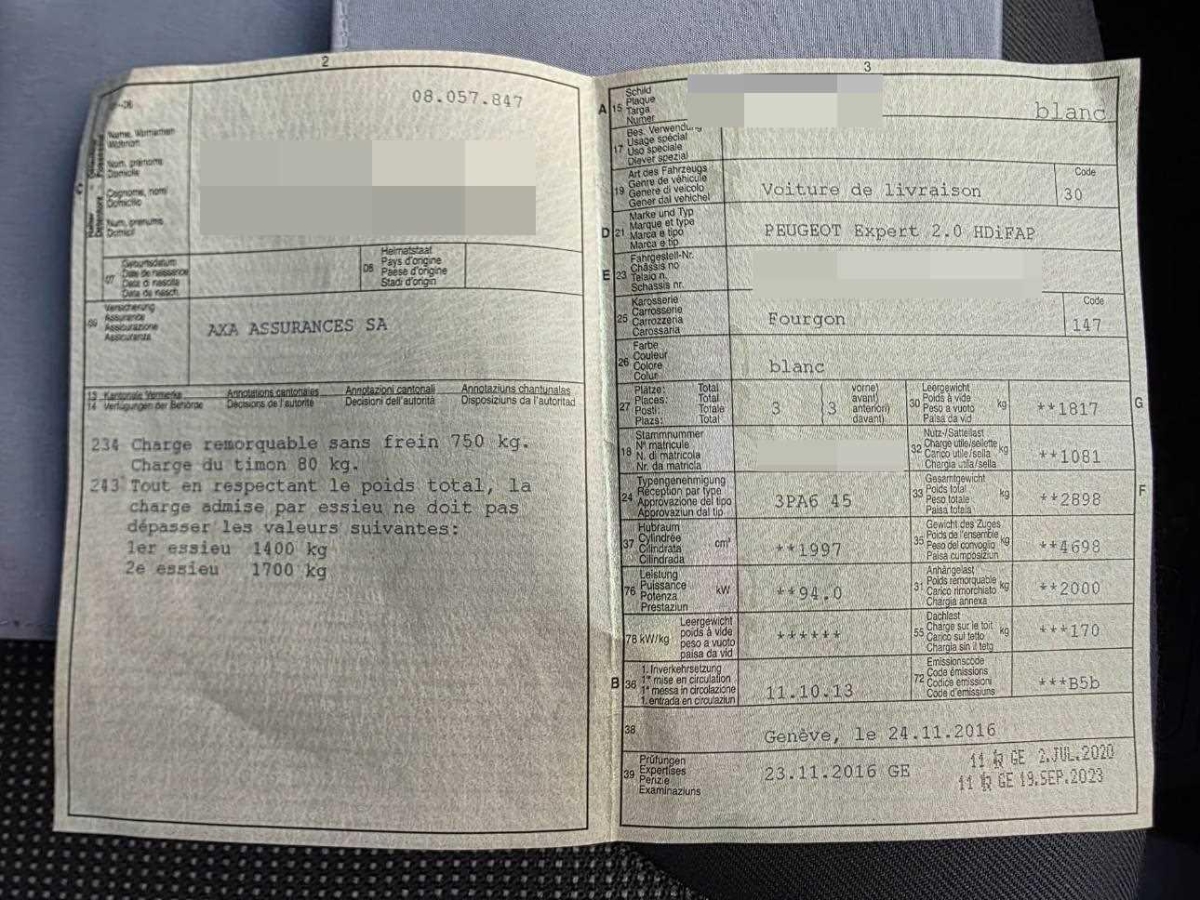 2
08.057.847
C
Name, Vornamen
Wohnort
Nom, prénoms
Domicile
Cognome, nomi
Domicilio
Num, prenums
Domicil
07
Geburtsdatum
Date de naissance
Data di nascita
Data da nasch.
08
Heimatstaat
Pays d'origine
Paese d'origine
Stadi d'origin
09
Versicherung
Assurance
Assicurazione
Assicuranza
AXA ASSURANCES SA
13 Kantonale Vermerke Annotations cantonales Annotazioni cantonali Annotaziuns chantunalas
14 Verfügungen der Behörde Décisions de l'autorité Decisioni dell'autorità Disposiziuns da l'autoritad
234 Charge remorquable sans frein 750 kg.
Charge du timon 80 kg.
243 Tout en respectant le poids total, la
charge admise par essieu ne doit pas
dépasser les valeurs suivantes:
1er essieu 1400 kg
2e essieu 1700 kg
3
A 15
Schild
Plaque
Targa
Numer
blanc
17
Bes. Verwendung
Usage spécial
Uso speciale
Diever spezial
19
Art des Fahrzeugs
Genre de véhicule
Genere di veicolo
Gener dal vehichel
Voiture de livraison
Code
30
D 21
Marke und Typ
Marque et type
Marca e tipo
Marca e tip
PEUGEOT Expert 2.0 HDiFAP
E 23
Fahrgestell-Nr.
Châssis no
Telaio n.
Schassis nr.
25
Karosserie
Carrosserie
Carrozzeria
Carossaria
Fourgon
Code
147
26
Farbe
Couleur
Colore
Colur
blanc
27
Plätze: Total
Places: Total
Posti: Totale
Plazs: Total
3 (3
vorne)
avant)
anteriori)
davant)
30
Leergewicht
Poids à vide
Peso a vuoto
Paisa da vid
kg
**1817
G
18
Stammnummer
N° matricule
N. di matricola
Nr. da matricla
32
Nutz-/Sattellast
Charge utile/sellette
Carico utile/sella
Chargia utila/sella
kg
**1081
24
Typengenehmigung
Réception par type
Approvazione del tipo
Approvaziun dal tip
3PA6 45
33
Gesamtgewicht
Poids total
Peso totale
Paisa totala
kg
**2898
F
37
Hubraum
Cylindrée
Cilindrata
Cilindrada
cm³
**1997
35
Gewicht des Zuges
Poids de l'ensemble
Peso del convoglio
Paisa cumposiziun
kg
**4698
76
Leistung
Puissance
Potenza
Prestaziun
kW
**94.0
31
Anhängelast
Poids remorquable
Carico rimorchiato
Chargia annexa
kg
**2000
78 kW/kg
Leergewicht
poids à vide
peso a vuoto
paisa da vid
******
55
Dachlast
Charge sur le toit
Carico sul tetto
Chargia sin il tetg
kg
***170
B 36
1. Inverkehrsetzung
1re mise en circulation
1a messa in circolazione
1. entrada en circulaziun
11.10.13
72
Emissionscode
Code émissions
Codice emissioni
Code d'emissiuns
***B5b
38
Genève, le 24.11.2016
39
Prüfungen
Expertises
Perizie
Examinaziuns
23.11.2016 GE
11 GE 2.JUL.2020
11 GE 19.SEP.2023